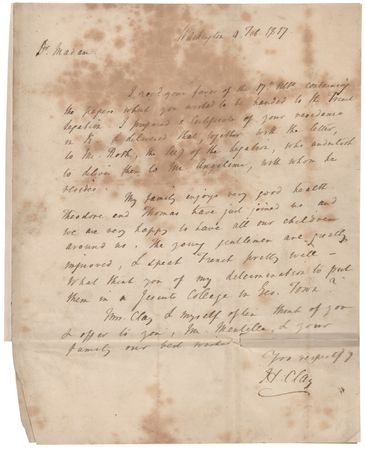 Washington 4 Feb 1817
Dr. Madam
I recd your favor of the 17th Ulto. containing
the papers which you wished to be handed to the French
Legation. I prepared a Certificate of your residence
in K. & delivered that, together with the letter,
to Mr Roth, the Secy of the legation, who undertook
to deliver them to Mr. Angelime, with whom he
resides.
My family enjoys very good health
Theodore and Thomas have just joined us and
we are very happy to have all our children
around us. The young gentlemen are greatly
improved, & speak French pretty well –
What think you of my determination to put
them in a Jesuits College in Geo. Town?
Mrs. Clay & myself often think of you
& offer to you, Mr. Mentelle, & your
family our best wishes
Yrs respectfy
H. Clay